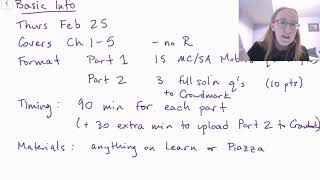 Basic Info
Thurs Feb 25
Covers Ch 1-5 - no R
Format Part 1 15 MC/SA
Part 2 3 full sol'n q's (10 pts)
to Crowdmark
Timing: 90 min for each part
(+ 30 extra min to upload Part 2 to
Materials: anything on Learn or Piazza